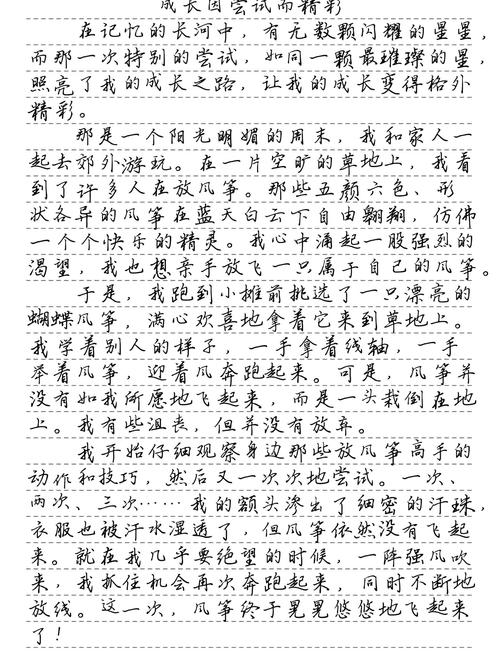 成长因尝试而精彩
在记忆的长河中，有无数颗闪耀的星星，
而那一次特别的尝试，如同一颗最璀璨的星，
照亮了我的成长之路，让我的成长变得格外
精彩。
那是一个阳光明媚的周末，我和家人一
起去郊外游玩。在一片空旷的草地上，我看
到了许多人在放风筝。那些五颜六色、形
状各异的风筝在蓝天白云下自由翱翔，仿佛
一个个快乐的精灵。我心中涌起一股强烈的
渴望，我也想亲手放飞一只属于自己的风筝。
于是，我跑到小摊前挑选了一只漂亮的
蝴蝶风筝，满心欢喜地拿着它来到草地上。
我学着别人的样子，一手拿着线轴，一手
举着风筝，迎着风奔跑起来。可是，风筝并
没有如我所愿地飞起来，而是一头栽倒在地
上。我有些沮丧，但并没有放弃。
我开始仔细观察身边那些放风筝高手的
动作和技巧，然后又一次次地尝试。一次、
两次、三次……我的额头渗出了细密的汗珠，
衣服也被汗水湿透了，但风筝依然没有飞起
来。就在我几乎要绝望的时候，一阵强风吹
来，我抓住机会再次奔跑起来，同时不断地
放线。这一次，风筝终于晃晃悠悠地飞起来
了！